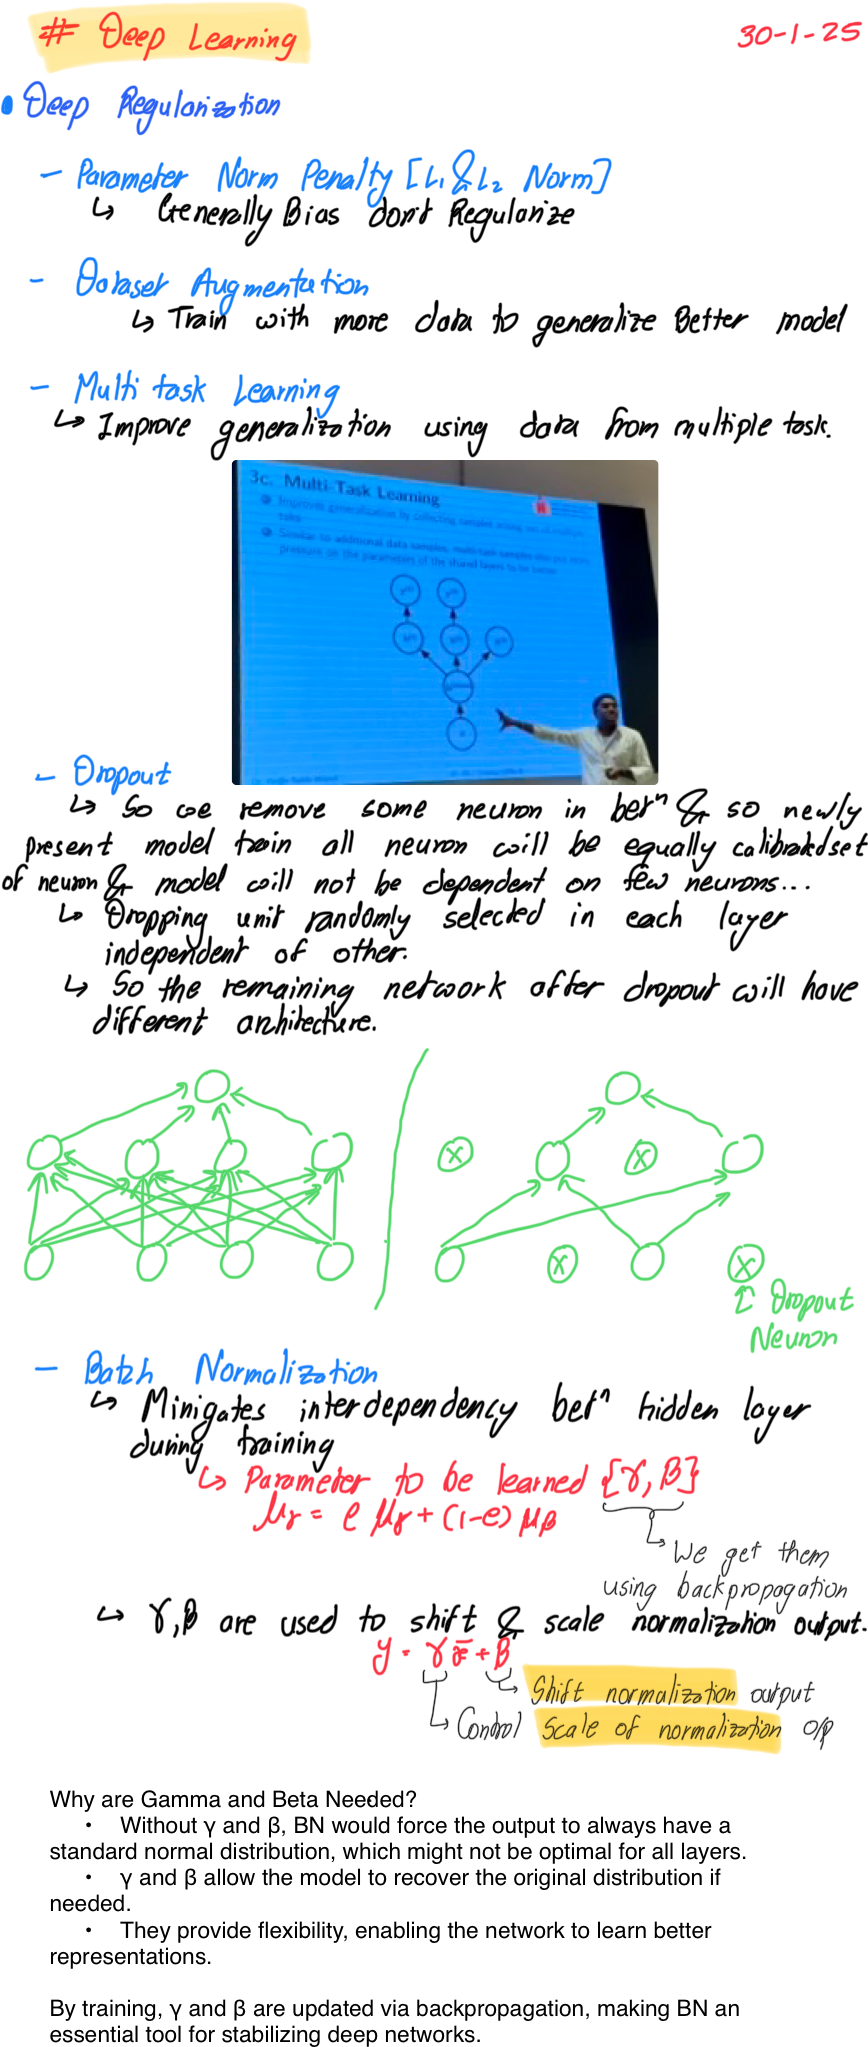 # Deep Learning
30-1-25
• Deep Regularization
- Parameter Norm Penalty [L₁ & L₂ Norm]
↳ Generally Bias don't Regularize
- Dataset Augmentation
↳ Train with more data to generalize Better model
- Multi task Learning
↳ Improve generalization using data from multiple task.
3c. Multi-Task Learning
Improves generalization by collecting samples
Similar to additional data samples, multi-task samples also put more
pressure on the parameters of the shared layers to be better
- Dropout
↳ So we remove some neuron in betⁿ & so newly
present model train all neuron will be equally calibrated set
of neuron & model will not be dependent on few neurons...
↳ Dropping unit randomly selected in each layer
independent of other.
↳ So the remaining network after dropout will have
different architecture.
X
X
X
X
↑ Dropout
Neuron
- Batch Normalization
↳ Minigates interdependency betⁿ hidden layer
during training
↳ Parameter to be learned {γ, β}
μγ = e μγ + (1-e) μβ
↳ We get them
using backpropogation
↳ γ, β are used to shift & scale normalization output.
y = γx̄ + β
↳ Shift normalization output
↳ Control Scale of normalization o/p
Why are Gamma and Beta Needed?
• Without γ and β, BN would force the output to always have a
standard normal distribution, which might not be optimal for all layers.
• γ and β allow the model to recover the original distribution if
needed.
• They provide flexibility, enabling the network to learn better
representations.
By training, γ and β are updated via backpropagation, making BN an
essential tool for stabilizing deep networks.